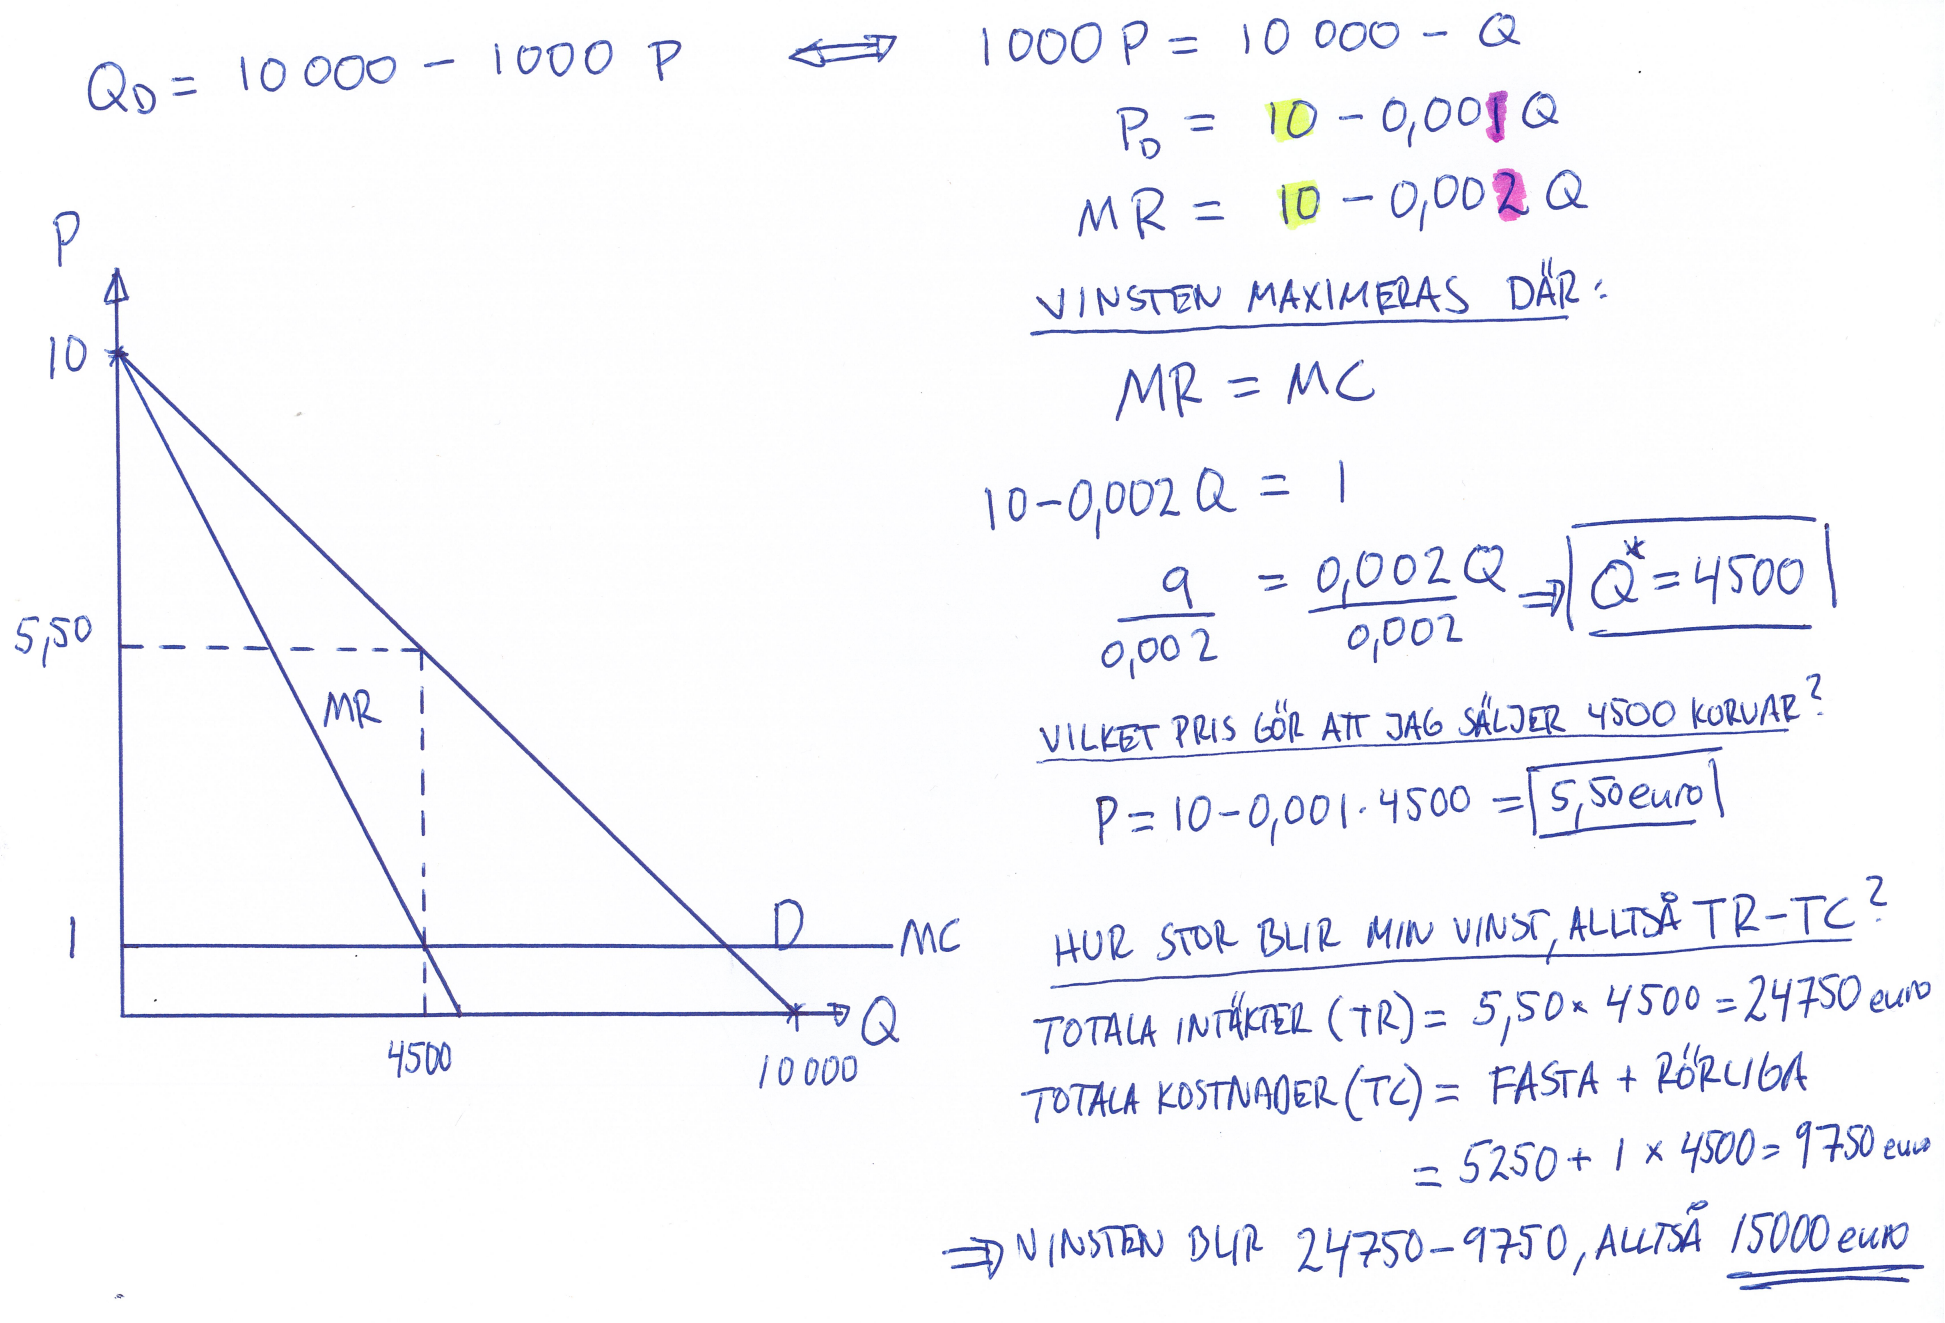 Q_D = 10 000 - 1000 P ⟺ 1000 P = 10 000 - Q
P_D = 10 - 0,001 Q
MR = 10 - 0,002 Q
VINSTEN MAXIMERAS DÄR:
MR = MC
10 - 0,002 Q = 1
9/0,002 = 0,002 Q/0,002 ⇒ Q* = 4500
VILKET PRIS GÖR ATT JAG SÄLJER 4500 KORVAR?
P = 10 - 0,001 · 4500 = 5,50 euro
HUR STOR BLIR MIN VINST, ALLTSÅ TR-TC?
TOTALA INTÄKTER (TR) = 5,50 × 4500 = 24750 euro
TOTALA KOSTNADER (TC) = FASTA + RÖRLIGA
= 5250 + 1 × 4500 = 9750 euro
⇒ VINSTEN BLIR 24750 - 9750, ALLTSÅ 15000 euro
P
10
5,50
MR
1
D
MC
Q
4500
10 000